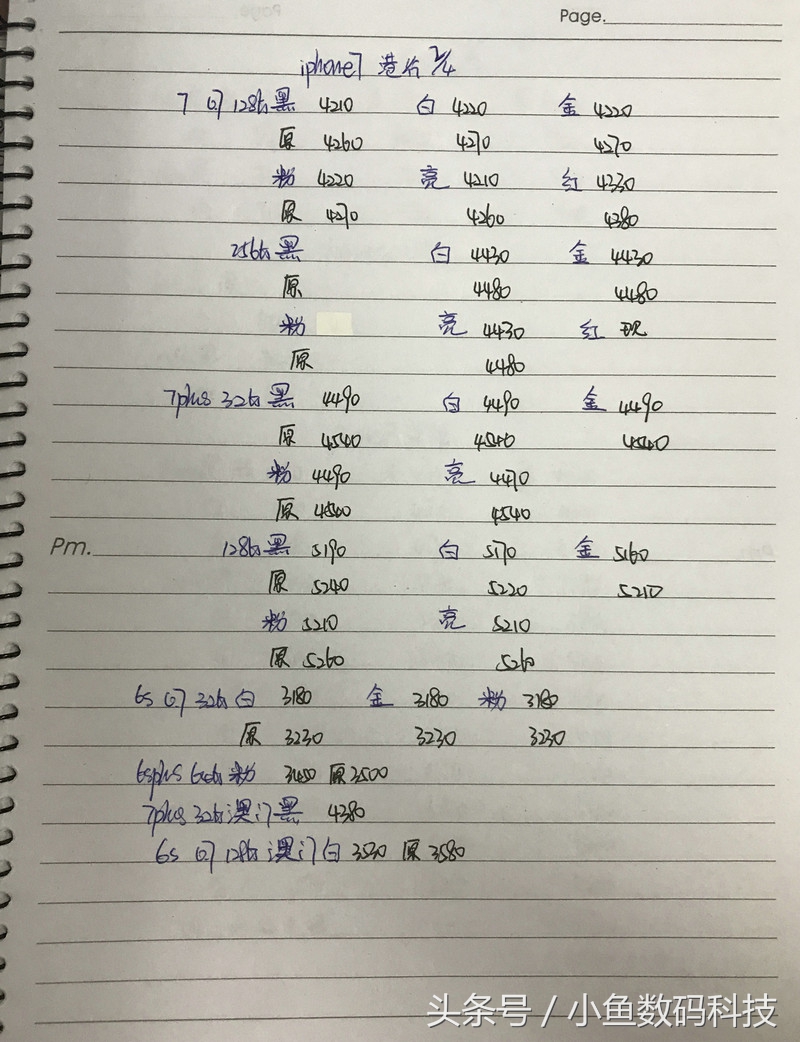 Page.
iphone7 港行 2/4
7 4.7 128G 黑 4210 白 4220 金 4220
原 4260 4270 4270
粉 4220 亮 4210 红 4330
原 4270 4260 4380
256G 黑 白 4430 金 4430
原 4480 4480
粉 亮 4430 红 现
原 4480
7plus 32G 黑 4490 白 4490 金 4490
原 4540 4540 4540
粉 4490 亮 4470
原 4540 4540
Pm. 128G 黑 5190 白 5170 金 5160
原 5240 5220 5210
粉 5210 亮 5210
原 5260 5260
6s 4.7 32G 白 3180 金 3180 粉 3180
原 3230 3230 3230
6splus 64G 粉 3450 原 3500
7plus 32G 澳门黑 4380
6s 4.7 128G 澳门白 3530 原 3580
头条号 / 小鱼数码科技